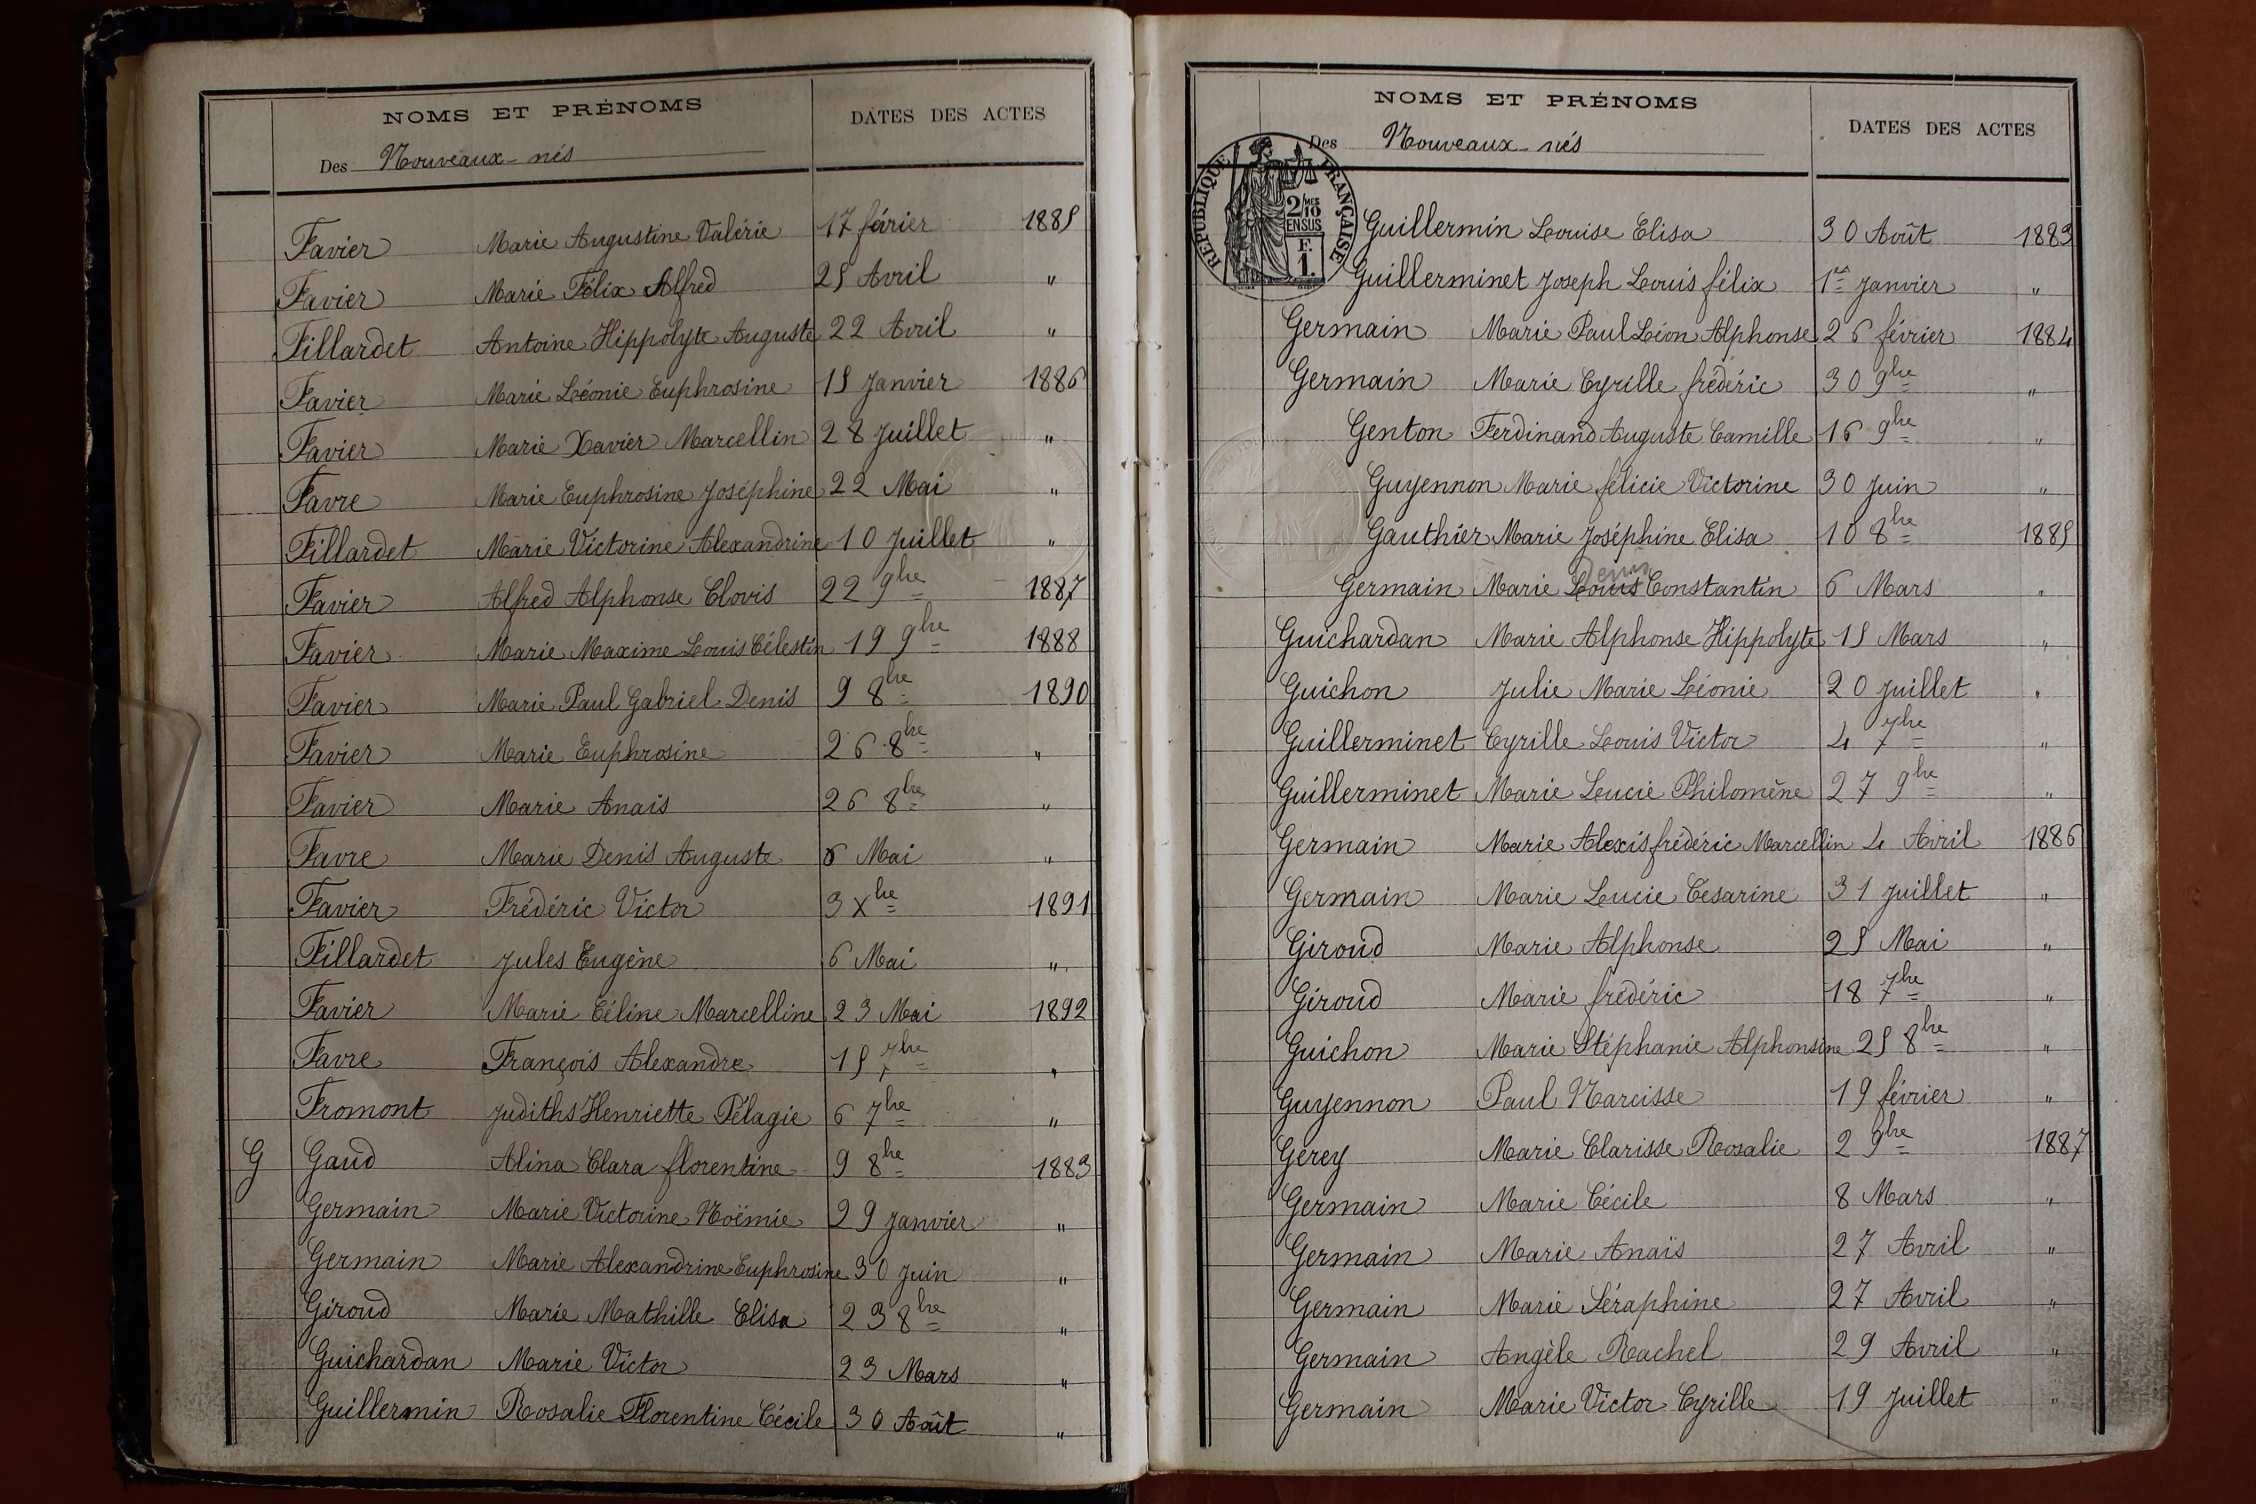 NOMS ET PRÉNOMS
DATES DES ACTES
Des Nouveaux-nés
Favier Marie Augustine Valérie 17 février 1885
Favier Marie Félix Alfred 25 Avril "
Fillardet Antoine Hippolyte Auguste 22 Avril "
Favier Marie Léonie Euphrosine 15 Janvier 1886
Favier Marie Xavier Marcellin 28 Juillet "
Favre Marie Euphrosine Joséphine 22 Mai "
Fillardet Marie Victorine Alexandrine 10 Juillet "
Favier Alfred Alphonse Clovis 22 9bre 1887
Favier Marie Maxime Louis Célestin 19 9bre 1888
Favier Marie Paul Gabriel Denis 9 8bre 1890
Favier Marie Euphrosine 26 8bre "
Favier Marie Anaïs 26 8bre "
Favre Marie Denis Auguste 6 Mai "
Favier Frédéric Victor 3 Xbre 1891
Fillardet Jules Eugène 6 Mai "
Favier Marie Céline Marcelline 23 Mai 1892
Favre François Alexandre 15 7bre "
Fromont Judiths Henriette Pélagie 6 7bre "
G Gaud Alina Clara florentine 9 8bre 1883
Germain Marie Victorine Noëmie 29 Janvier "
Germain Marie Alexandrine Euphrosine 30 Juin "
Giroud Marie Mathille Elisa 23 8bre "
Guichardan Marie Victor 23 Mars "
Guillermin Rosalie Florentine Cécile 30 Août "
NOMS ET PRÉNOMS
DATES DES ACTES
Des Nouveaux-nés
RÉPUBLIQUE FRANÇAISE
2/10 MES
EN SUS
F.
1.
Guillermin Louise Elisa 30 Août 1883
Guillerminet Joseph Louis félix 1er Janvier "
Germain Marie Paul Léon Alphonse 26 février 1884
Germain Marie Cyrille frédéric 30 9bre "
Genton Ferdinand Auguste Camille 16 9bre "
Guyennon Marie félicie Victorine 30 Juin "
Gauthier Marie Joséphine Elisa 10 8bre 1885
Denis
Germain Marie Louis Constantin 6 Mars "
Guichardan Marie Alphonse Hippolyte 15 Mars "
Guichon Julie Marie Léonie 20 Juillet "
Guillerminet Cyrille Louis Victor 4 7bre "
Guillerminet Marie Lucie Philomène 27 9bre "
Germain Marie Alexis frédéric Marcellin 4 Avril 1886
Germain Marie Lucie Cesarine 31 Juillet "
Giroud Marie Alphonse 25 Mai "
Giroud Marie frédéric 18 7bre "
Guichon Marie Stéphanie Alphonsine 25 8bre "
Guyennon Paul Narcisse 19 février "
Gerey Marie Clarisse Rosalie 2 9bre 1887
Germain Marie Cécile 8 Mars "
Germain Marie Anaïs 27 Avril "
Germain Marie Séraphine 27 Avril "
Germain Angèle Rachel 29 Avril "
Germain Marie Victor Cyrille 19 Juillet "